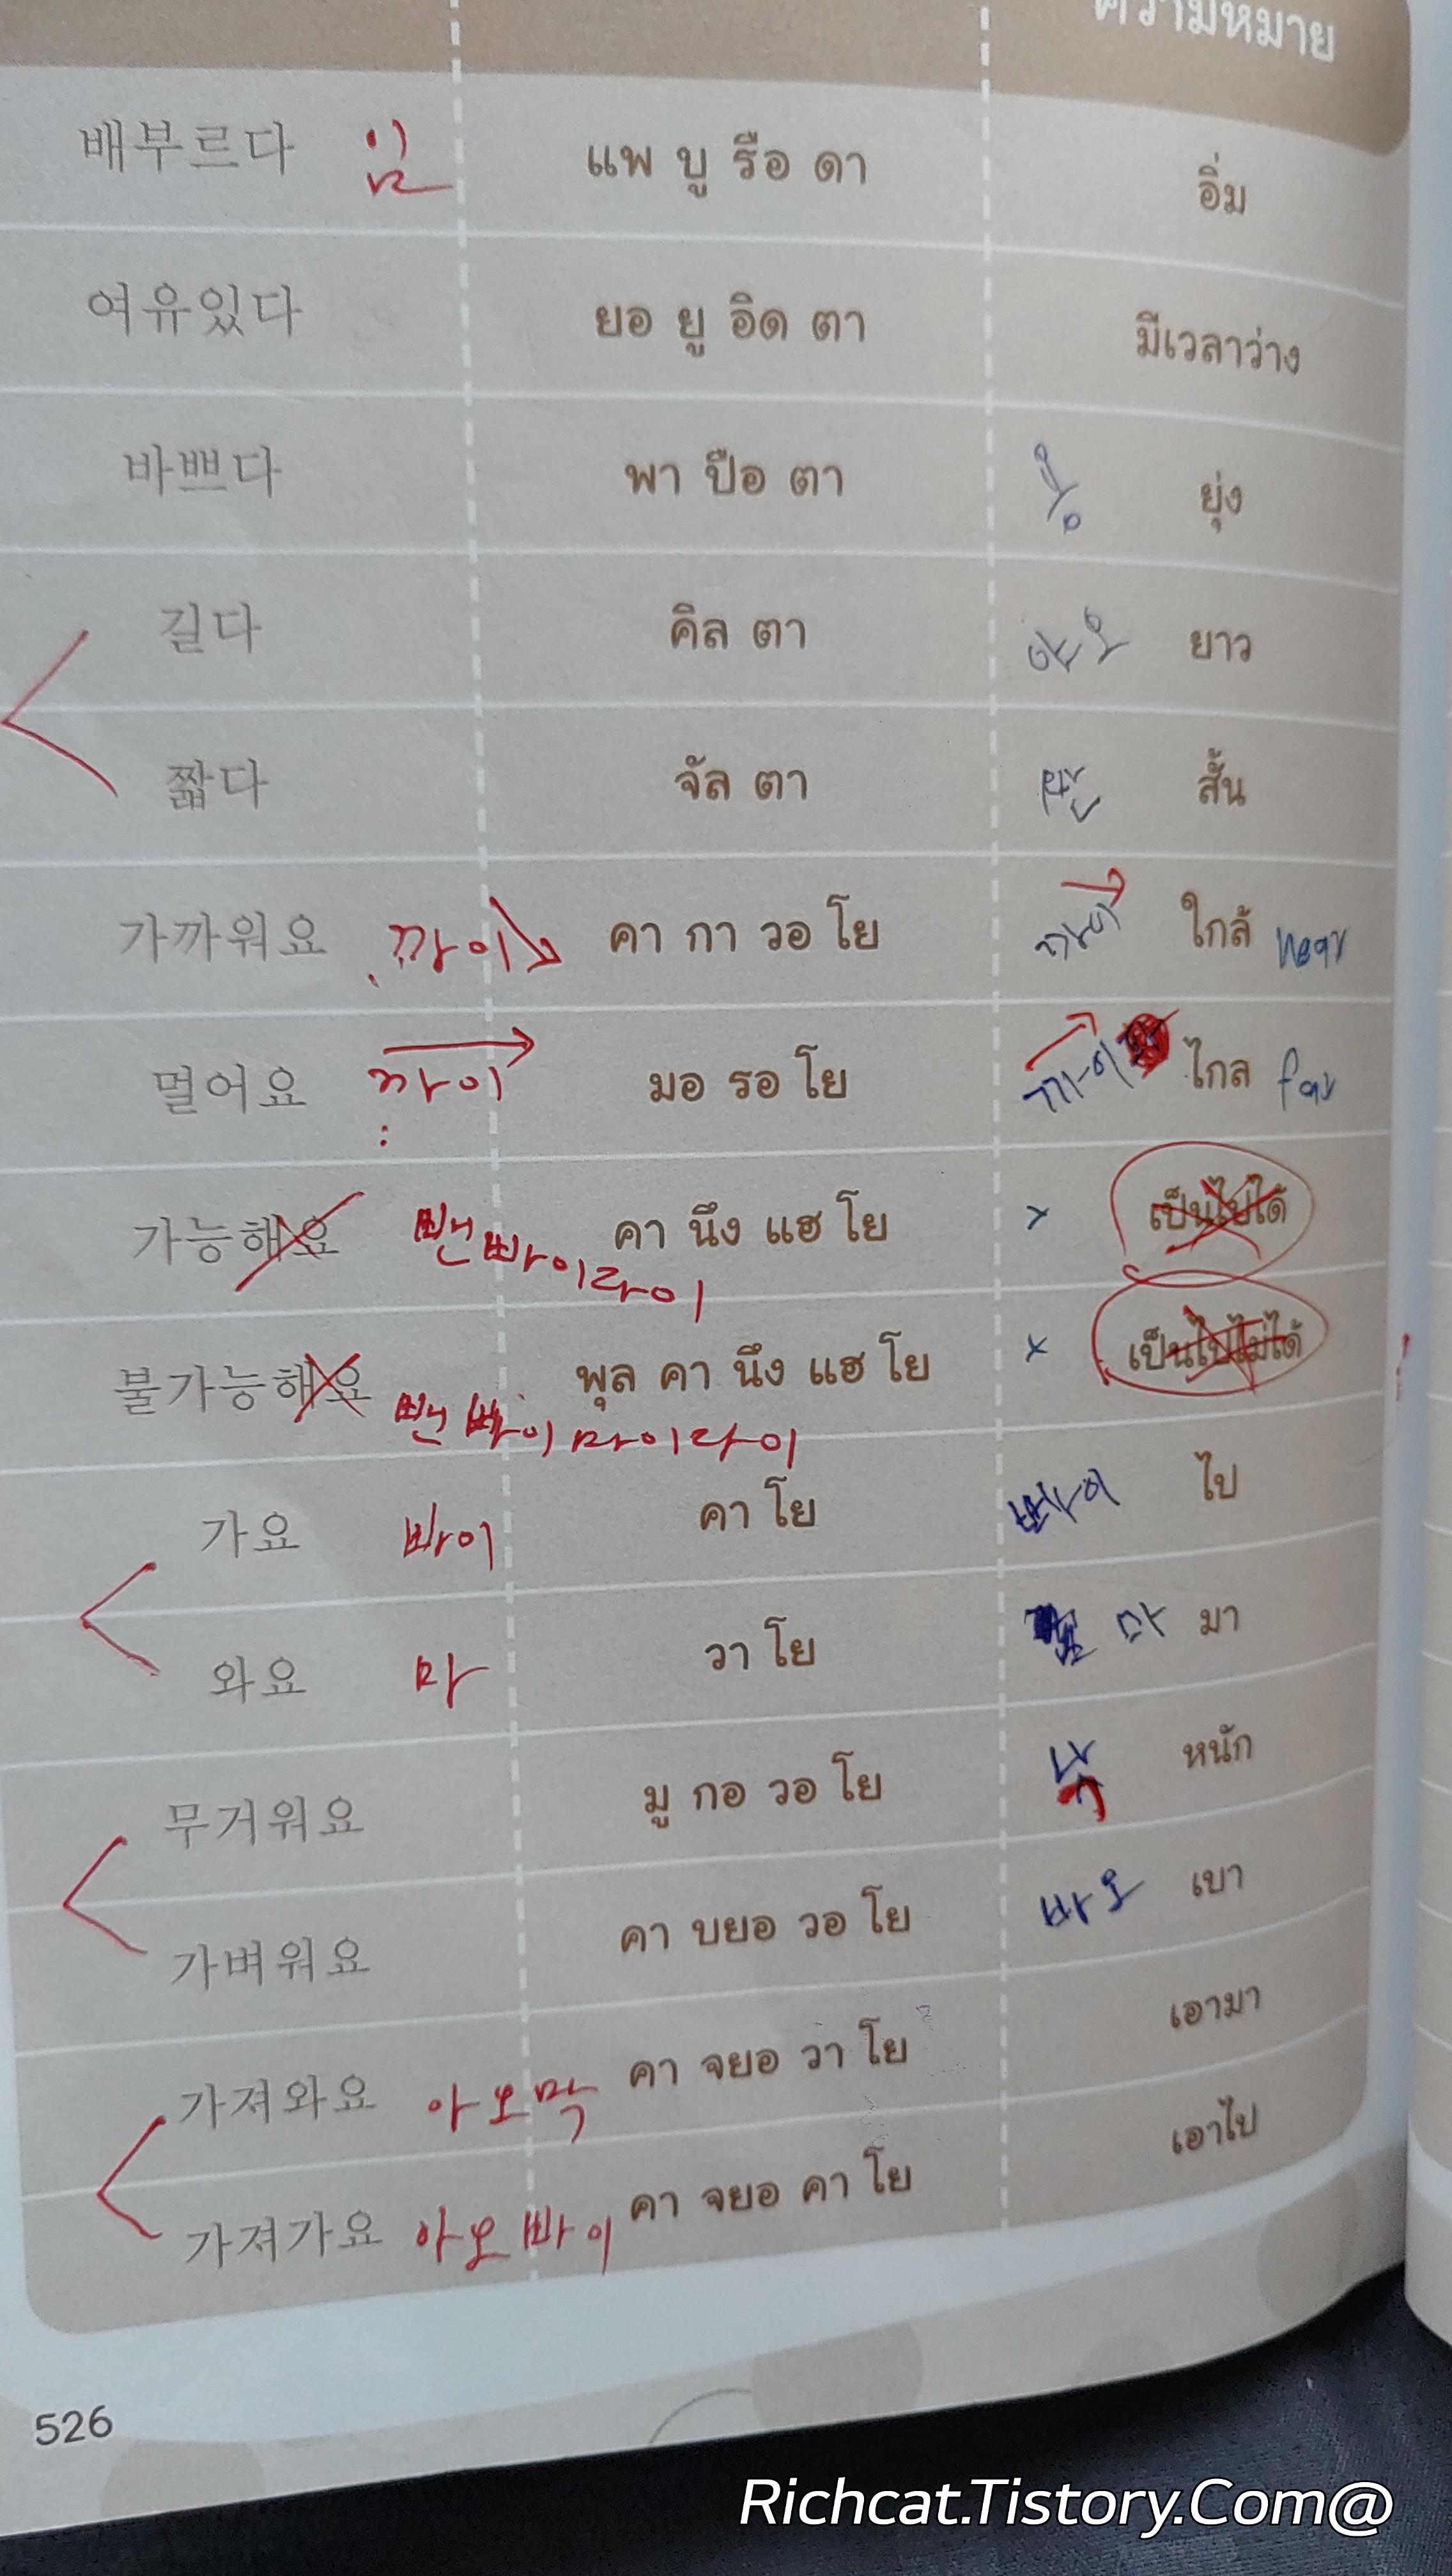 ความหมาย
배부르다 임 แพ บู รือ ดา อิ่ม
여유있다 ยอ ยู อิด ตา มีเวลาว่าง
바쁘다 พา ปือ ตา ยุ่ง
길다 คิล ตา 야오 ยาว
짧다 จัล ตา สั้น
가까워요 까이 คา กา วอ โย 까이 ใกล้ near
멀어요 까이 มอ รอ โย 까이 ไกล far
가능해요 뺀빠이라이 คา นึง แฮ โย x เป็นไปได้
불가능해요 뺀빠이마이라이 พุล คา นึง แฮ โย x เป็นไปไม่ได้
가요 빠이 คา โย 빠이 ไป
와요 마 วา โย 마 มา
무거워요 มู กอ วอ โย 낙 หนัก
가벼워요 คา บยอ วอ โย 바오 เบา
가져와요 아오 คา จยอ วา โย เอามา
가져가요 아오빠이 คา จยอ คา โย เอาไป
526
Richcat.Tistory.Com@